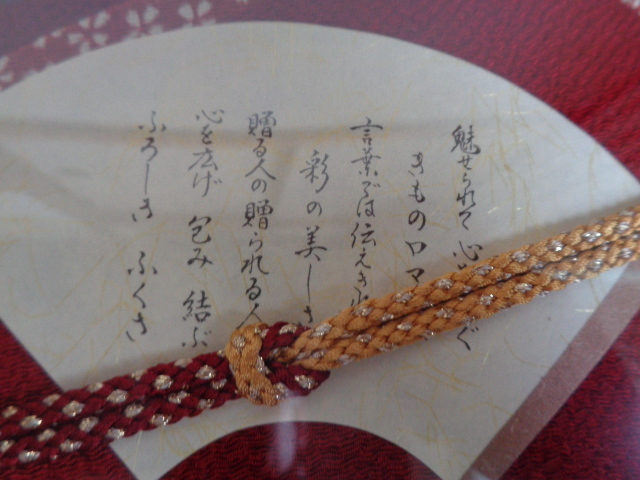 魅せられて 心
きものロマ
言葉では伝えき
彩の美しさ
贈る人の贈られる人
心を広げ 包み 結ぶ
ふろしき ふくさ